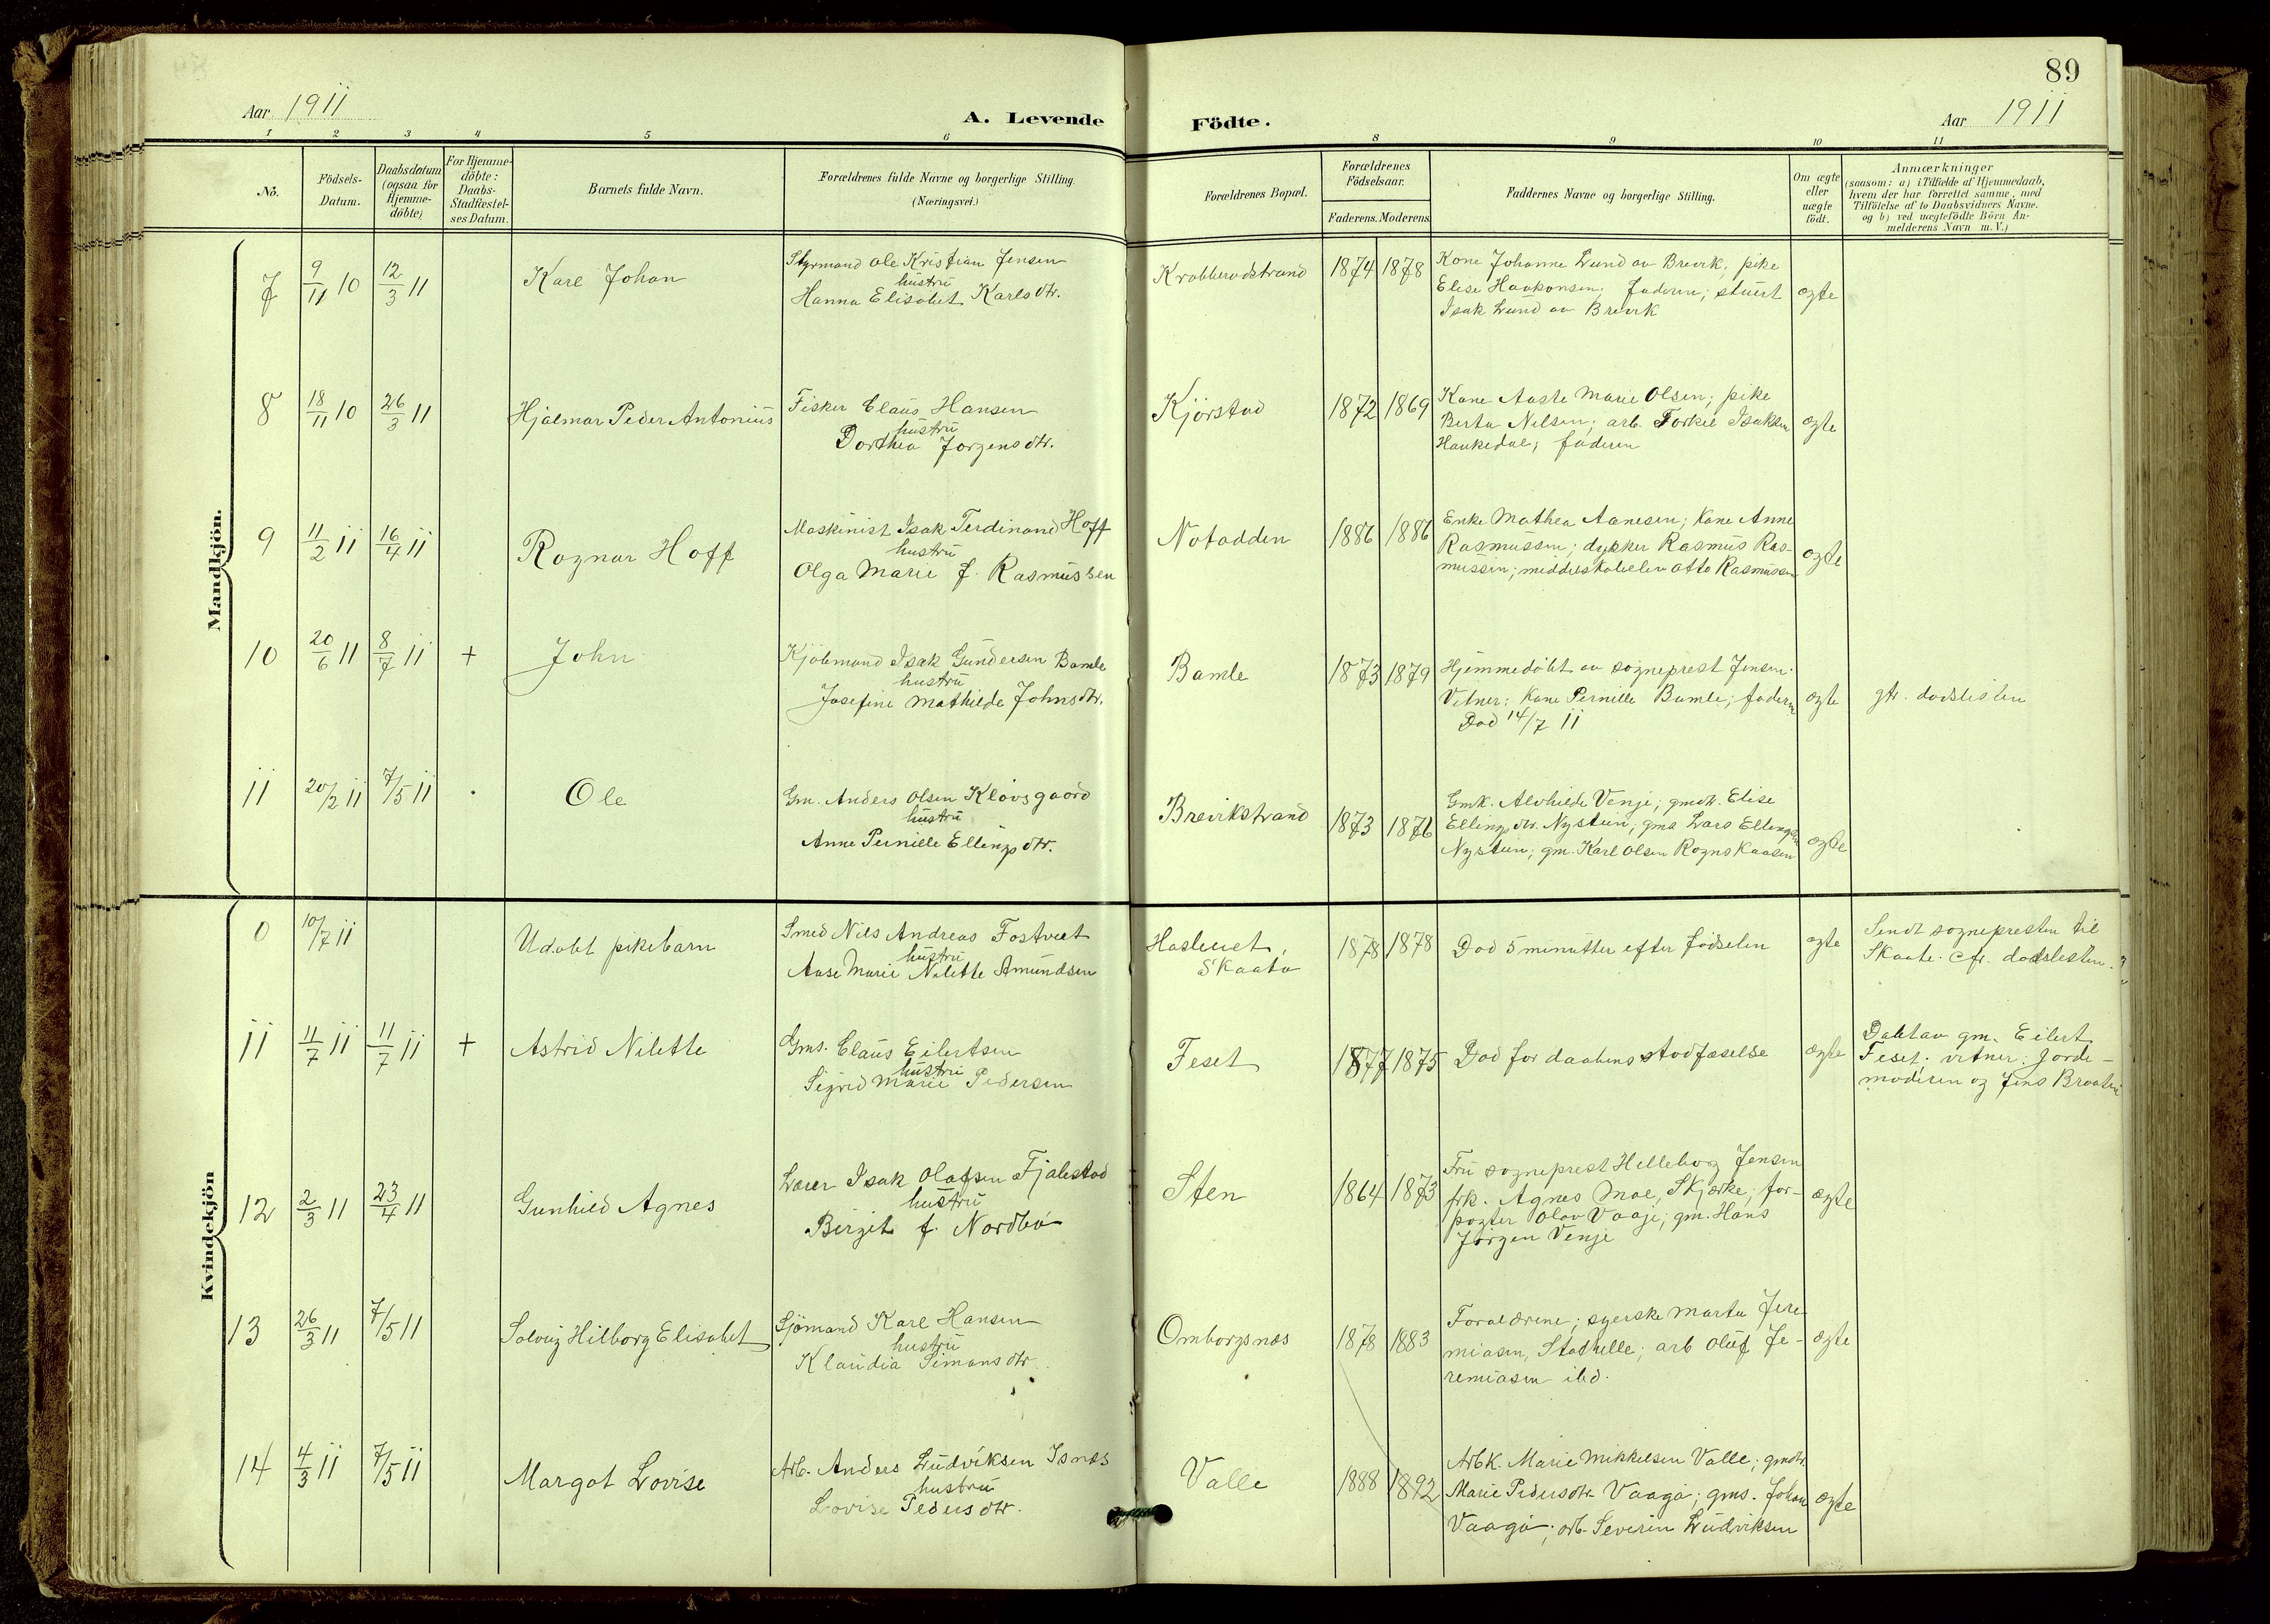 89
Aar 1911
A. Levende Födte.
Aar 1911
1 2 3 4 5 6 8 9 10 11
No.
Födsels-
Datum.
Daabsdatum
(ogsaa for
Hjemme-
döbte)
For Hjemme-
döbte:
Daabs-
Stadfæstel-
ses Datum.
Barnets fulde Navn.
Forældrenes fulde Navne og borgerlige Stilling.
(Næringsvei.)
Forældrenes Bopæl.
Forældrenes
Födselsaar.
Faderens. Moderens.
Faddernes Navne og borgerlige Stilling.
Om ægte
eller
uægte
födt.
Anmærkninger
(saasom: a) i Tilfælde af Hjemmedaab,
hvem der har forrettet samme, med
Tilföielse af to Daabsvidners Navne.
og b) ved uægtefödte Börn An-
melderens Navn m. V.)
Mandkjön.
7
9/11 10
12/3 11
Karl Johan
Styrmand Ole Kristian Jensen
hustru
Hanna Elisabet Karlsdtr.
Krabberødstrand
1874 1878
Kone Johanne Lund av Brevik; pike
Elise Haakonsen; faderen; stuert
Isak Lund av Brevik
ægte
8
18/11 10
26/3 11
Hjalmar Peder Antonius
Fisker Claus Hansen
hustru
Dorthea Jørgensdtr.
Kjørstad
1872 1869
Kone Aaste Marie Olsen; pike
Berta Nilsen; arb. Torkil Isaksen
Haukedal; faderen
ægte
9
11/2 11
16/4 11
Ragnar Hoff
Maskinist Isak Ferdinand Hoff
hustru
Olga Marie f. Rasmussen
Notodden
1886 1886
Enke Mathea Aanesen; Kone Anne
Rasmussen; dykker Rasmus Ras-
mussen; middelskoleelev Otto Rasmussen
ægte
10
20/6 11
8/7 11
+
John
Kjøbmand Isak Gundersen Bamle
hustru
Josefine Mathilde Johnsdtr.
Bamle
1873 1879
Hjemmedøbt av sogneprest Jensen.
Vitner: Kone Pernille Bamle; faderen
Død 14/7 11
ægte
dødslisten
11
20/2 11
7/5 11
Ole
Gm. Anders Olsen Kløvsgaard
hustru
Anne Pernille Ellingsdtr.
Brevikstrand
1873 1876
Gmk. Alvhilde Venje; gmdtr. Elise
Ellingsdtr. Nystuen; gms Lars Ellingsen
Nystuen; gm. Karl Olsen Rognskaasen
ægte
Kvindekjön
0
10/7 11
Udøbt pikebarn
Smed Nils Andreas Fostvedt
hustru
Aase Marie Nilette Amundsen
Skaatø
1878 1878
Død 5 minutter efter fødselen
ægte
Sendt sognepresten til
Skaatø. Cfr. dødslisten.
11
11/7 11
11/7 11
+
Astrid Nilette
Gms. Claus Eilertsen
hustru
Sigrid Marie Pedersen
Feset
1877 1875
Død før daabens stadfæstelse
ægte
Døbt av gm. Eilert
Feset; vitner: Jorde-
moderen og Jens Braaten
12
2/3 11
23/4 11
Gunhild Agnes
Lærer Isak Olafsen Fjalestad
hustru
Birgit f. Nordbø
Sten
1864 1873
Fru sogneprest Hilleborg Jensen
frk. Agnes Moe, Skjerke; for-
pagter Olav Vaaje; gm. Hans
Jørgen Venje
ægte
13
26/3 11
7/5 11
Solveig Hilborg Elisabet
Sjømand Karl Hansen
hustru
Klaudia Simonsdtr.
Omborgsnæs
1878 1883
Forældrene; syerske Marta Jere-
miasen, Stathelle; arb Oluf Je-
remiasen ibd.
ægte
14
4/3 11
7/5 11
Margot Lovise
Arb. Anders Ludviksen Isnæs
hustru
Lovise Pedersdtr.
Valle
1888 1892
Arbk. Marie Mikkelsen Valle; gmdtr.
Marie Pedersdtr. Vaagø; gms. Johan
Vaagø; arb. Severin Ludviksen
ægte